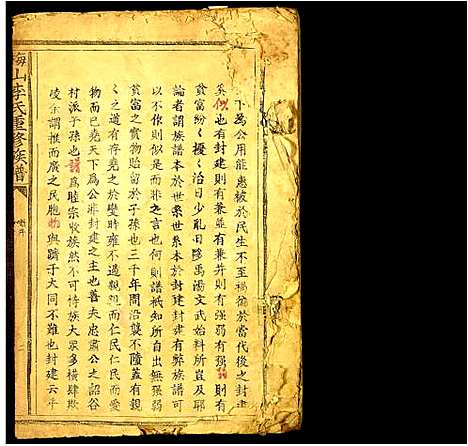 下為公用能惠被於民生不至禍徧於當代後之封建
奚似也有封建則有兼並有兼并則有強弱有強弱則有
貧富紛〻擾〻治日少亂日陟禹湯文武始料所豈及耶
論者謂族譜本於世系世系本於封建封建有弊族譜可
以不作則似是而非之言也何則譜祇知所自出無強弱
貧富之實物貽於子孫也三千年間沿襲不隳蓋有
〻之道有存堯之於變時雍不過親親而仁民仁民而愛
物而已堯天下為公非封建之主也善夫忠肅公之詔谷
村派子孫也譜為睦宗收族然不可恃族大眾多橫肆欺
凌余謂推而廣之民胞物與躋于大同不難也封建云乎
梅山李氏重修族譜